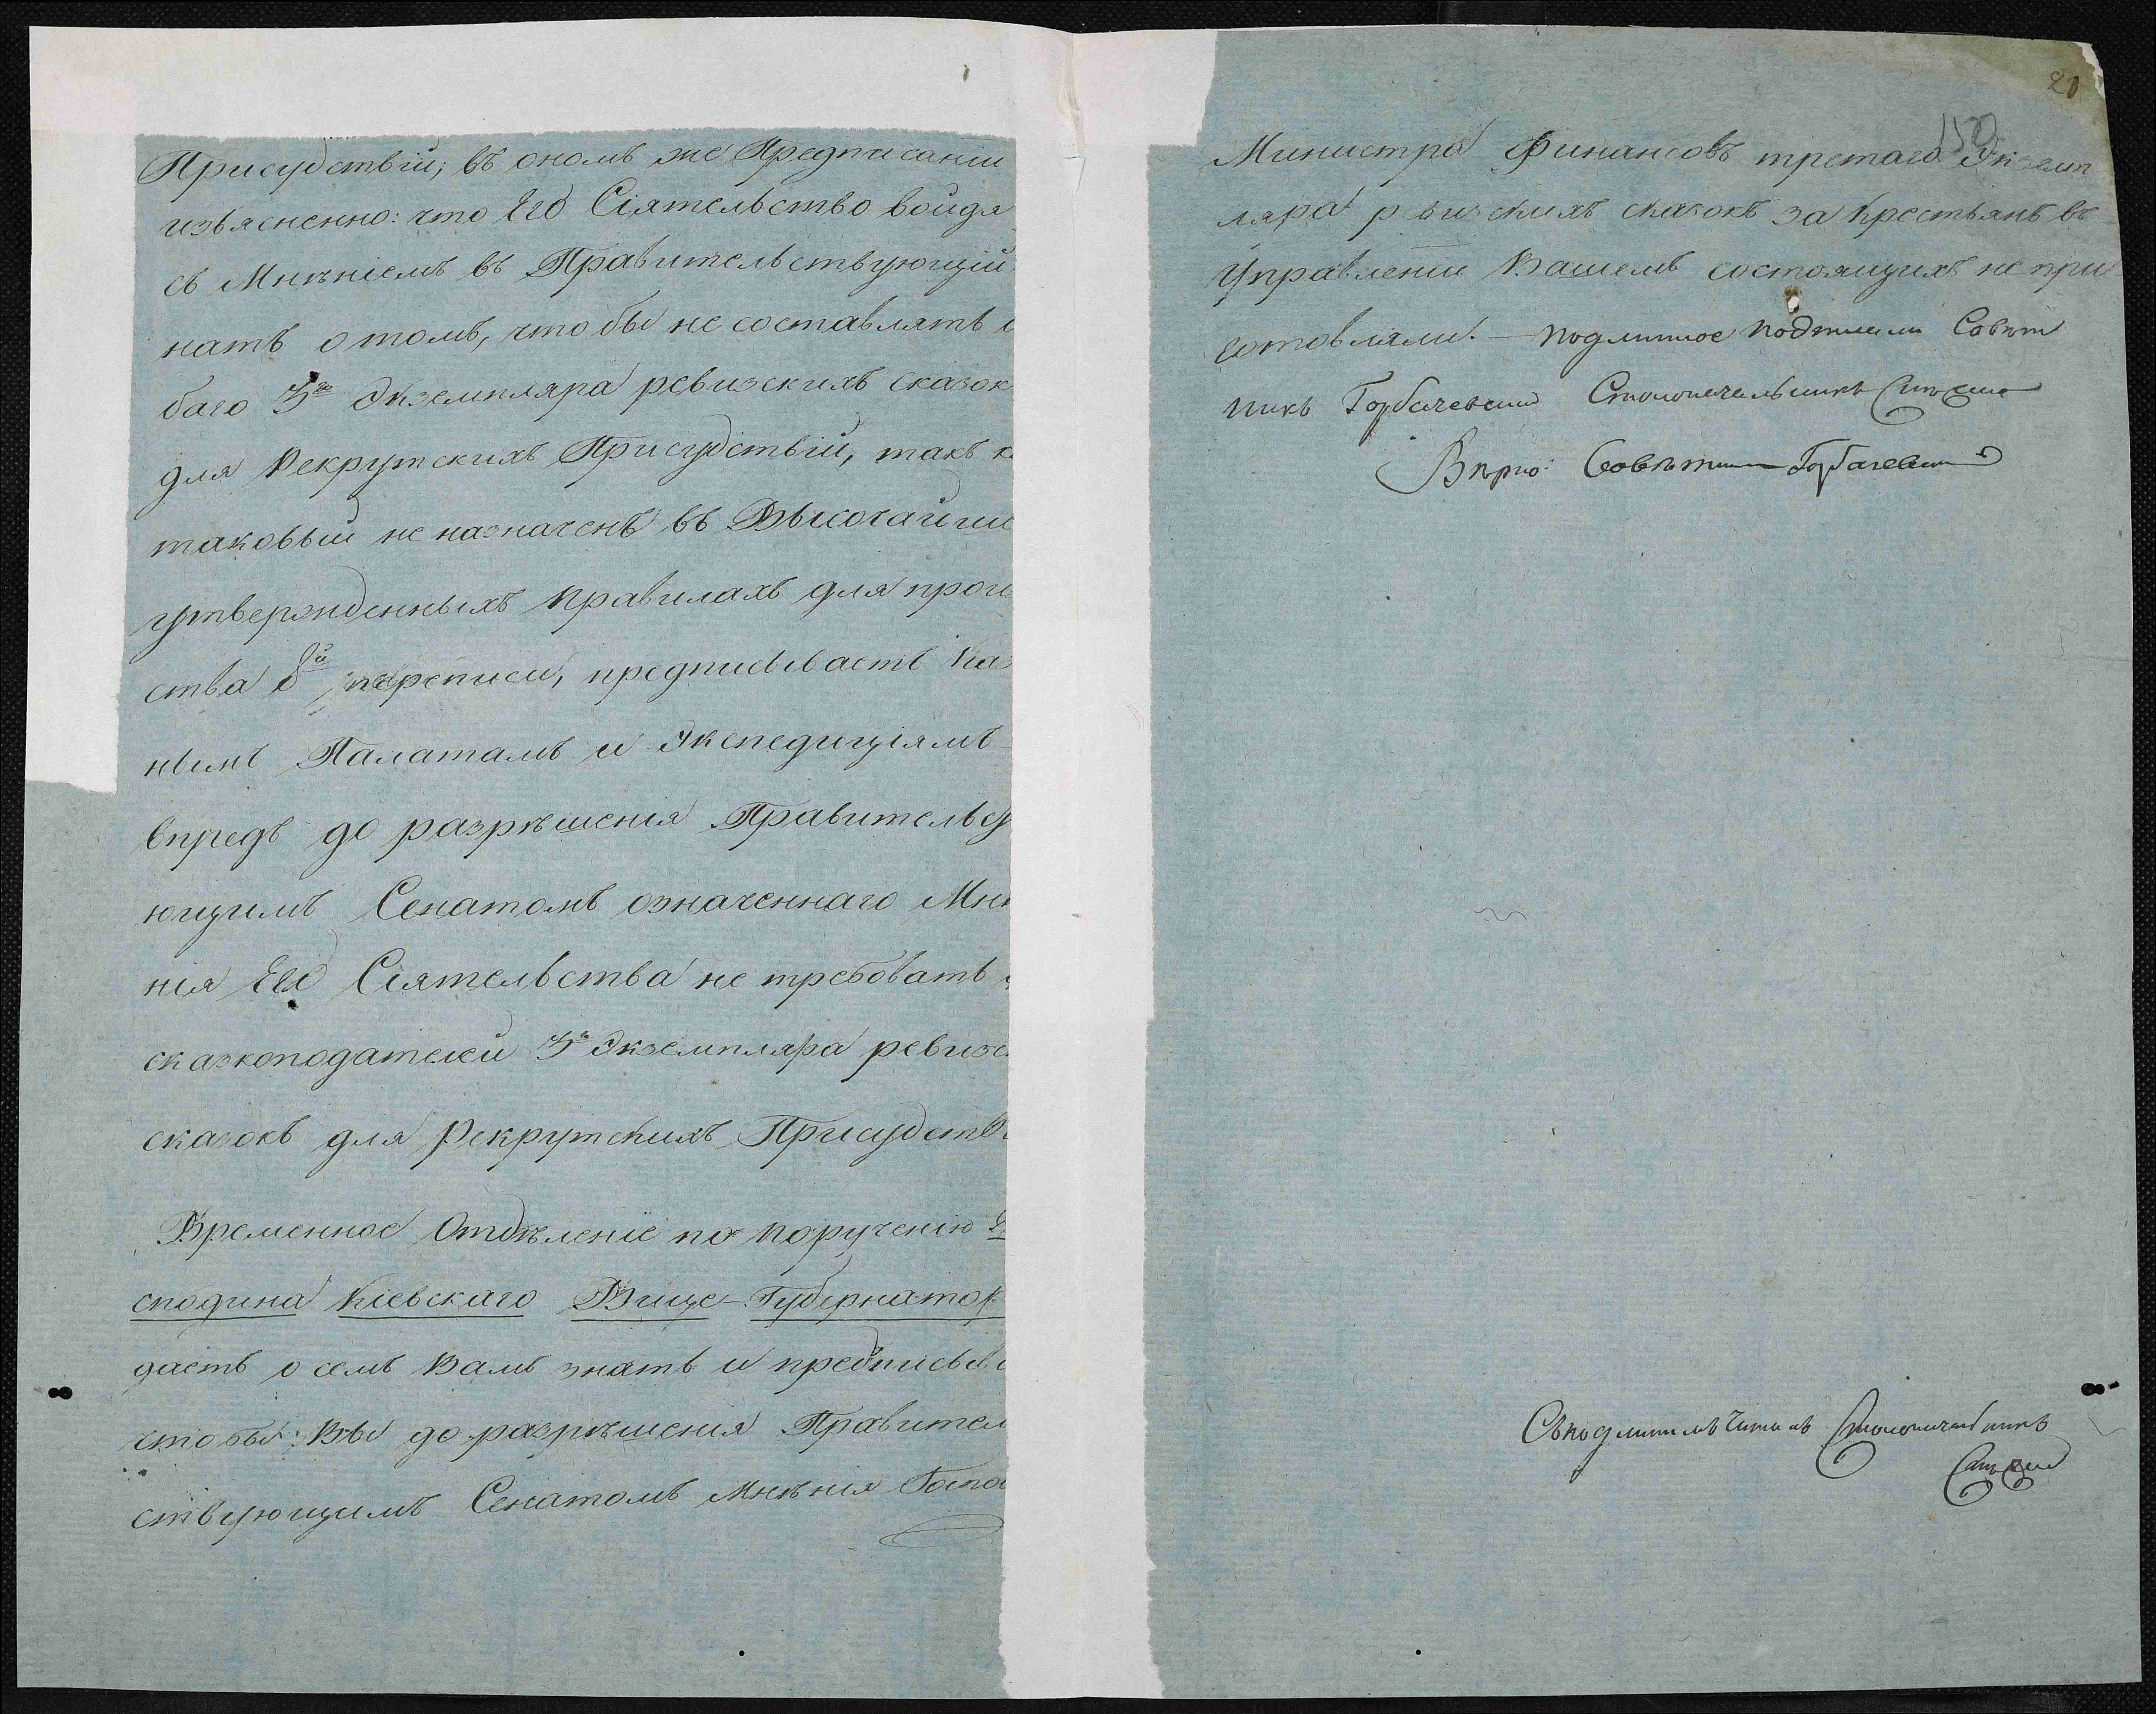 Присудствій; въ ономъ же Предписаніи
изъясненно: что Его Сіятельство войдя
съ Мнѣніемъ въ Правительствующій
натъ о томъ, что бы не составлять
баго 3го Экземпляра ревизскихъ сказок
для Рекрутскихъ Присудствій, такъ к
таковый не назначенъ въ Высочайше
утвержденныхъ правилахъ для прои
ства 8й переписи, предписываетъ Ка
нымъ Палатамъ и Экспедиціямъ
впредь до разрѣшенія Правительст
ющимъ Сенатомъ означеннаго Мнѣ
нія Его Сіятельства не требовать
сказкоподателей 3го Экземпляра ревизс
сказокъ для Рекрутскихъ Присудств
Временное Отдѣленіе по порученію
сподина Кіевскаго Вице-Губернатор
даетъ о семъ Вамъ знать и предписыва
чтобы Вы до разрѣшенія Правител
ствующимъ Сенатомъ Мнѣнія Госпо
20
150
Министра Финансовъ третаго Экземп
ляра ревизскихъ сказокъ за крестьянъ въ
Управленіи Вашемъ состоящихъ не при
готовляли. — Подлинное подписали Совѣт
никъ Горбачевскій Столоначальникъ
Вѣрно: Совѣтникъ Горбачевскій
Съ подлиннымъ читалъ Столоначальникъ